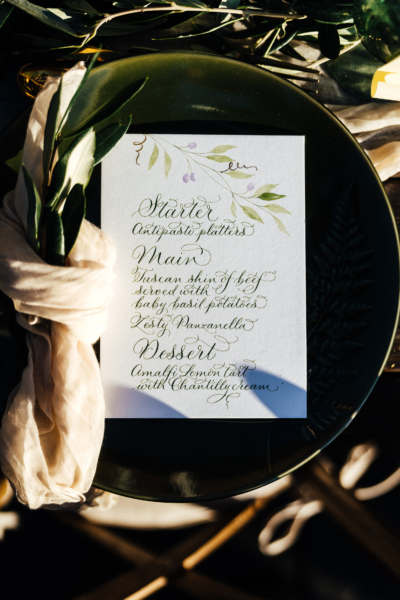 Starter
Antipasto platters
Main
Tuscan shin of beef
served with
baby basil potatoes
Zesty Panzanella
Dessert
Amalfi Lemon tart
with Chantilly cream